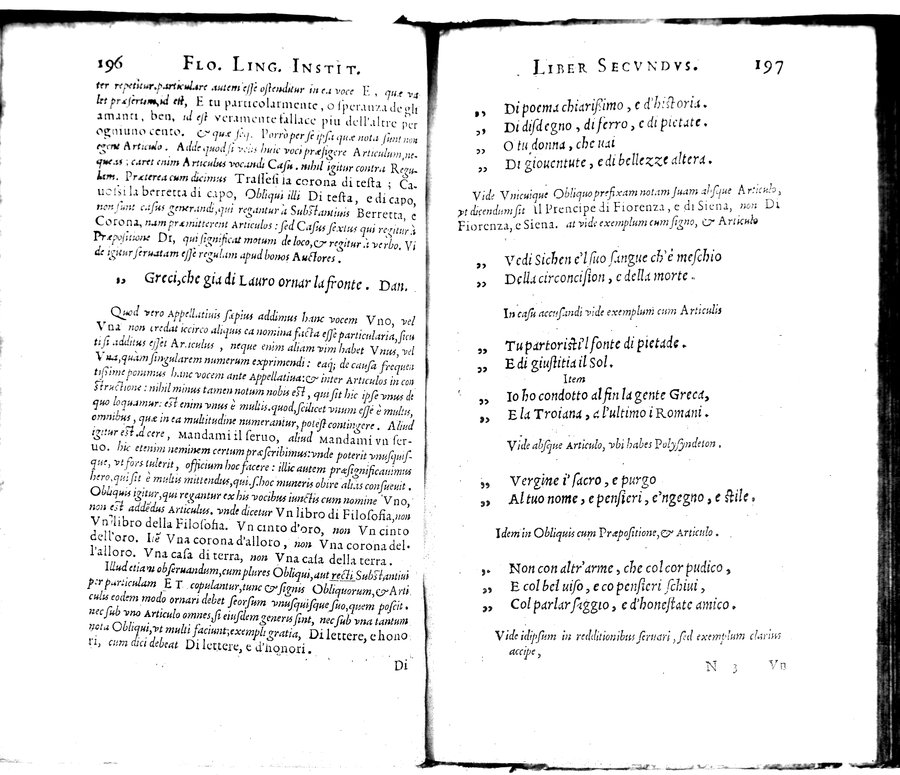 196 FLO. LING. INSTIT.
ter repetitur. particulare autem esse ostenditur in ea voce E, quæ va
let præsertim, id est, E tu particolarmente, o speranza de gli
amanti, ben, id est veramente fallace piu dell'altre per
ogni uno cento. & quæ seq. Porrò per se ipsa quæ nota sunt non
egent Articulo. Adde quod si velis huic voci præfigere Articulum, ne-
queas: caret enim Articulus vocandi Casu. nihil igitur contra Regu-
lam. Præterea cum dicimus Trassesi la corona di testa; Ca-
uossi la berretta di capo, Obliqui illi Di testa, e di capo,
non sunt casus generandi, qui regantur à Substantiuis Berretta, e
Corona, nam præmitterent Articulos: sed Casus sextus qui regitur à
Præpositione DI, qui significat motum de loco, & regitur à verbo. Vi
de igitur seruatam esse regulam apud bonos Auctores.
„ Greci, che gia di Lauro ornar la fronte. Dan.
Quod vero Appellatiuis sæpius addimus hanc vocem Vno, vel
Vna non credat iccirco aliquis ea nomina facta esse particularia, sicu
ti si additus esset Articulus, neque enim aliam vim habet Vnus, vel
Vna, quàm singularem numerum exprimendi: eaq; de causa frequen
tissime ponimus hanc vocem ante Appellatiua: & inter Articulos in con
structione: nihil minus tamen notum nobis est, qui sit hic ipse vnus de
quo loquamur: est enim vnus è multis. quod, scilicet vnum esse è multis,
omnibus, quæ in ea multitudine numerantur, potest contingere. Aliud
igitur est dicere, Mandami il seruo, aliud Mandami vn ser-
uo. hic etenim neminem certum præscribimus: vnde poterit vnusquis-
que, vt fors tulerit, officium hoc facere: illic autem præsignificauimus
hero, qui sit è multis mittendus, qui s. hoc muneris obire alias consueuit.
Obliquis igitur, qui regantur ex his vocibus iunctis cum nomine Vno,
non est addẽdus Articulus. vnde dicetur Vn libro di Filosofia, non
Vn libro della Filosofia. Vn cinto d'oro, non Vn cinto
dell'oro. Itẽ Vna corona d'alloro, non Vna corona del-
l'alloro. Vna casa di terra, non Vna casa della terra.
Illud etiam obseruandum, cum plures Obliqui, aut recti Substantiui
per particulam ET copulantur, tunc & signis Obliquorum, & Arti
culis eodem modo ornari debet seorsum vnusquisque suo, quem poscit.
nec sub vno Articulo omnes, si eiusdem generis sint, nec sub vna tantum
nota Obliqui, vt multi faciunt; exempli gratia, Di lettere, e hono
ri, cum dici debeat Di lettere, e d'honori.
Di
LIBER SECVNDVS. 197
„ Di poema chiarissimo, e d'historia.
„ Di disdegno, di ferro, e di pietate.
„ O tu donna, che vai
„ Di giouentute, e di bellezze altera.
Vide Vnicuique Obliquo prefixam notam suam absque Articulo,
vt dicendum sit il Prencipe di Fiorenza, e di Siena, non Di
Fiorenza, e Siena. at vide exemplum cum signo, & Articulo
„ Vedi Sichen e'l suo sangue ch'è meschio
„ Della circoncision, e della morte.
In casu accusandi vide exemplum cum Articulis
„ Tu partoristi'l fonte di pietade.
„ E di giustitia il Sol.
Item
„ Io ho condotto al fin la gente Greca,
„ E la Troiana, a l'ultimo i Romani.
Vide absque Articulo, vbi habes Polysyndeton.
„ Vergine i' sacro, e purgo
„ Al tuo nome, e pensieri, e'ngegno, e stile,
Idem in Obliquis cum Præpositione, & Articulo.
„ Non con altr'arme, che col cor pudico,
„ E col bel uiso, e co pensieri schiui,
„ Col parlar saggio, e d'honestate amico.
Vide idipsum in redditionibus seruari, sed exemplum clarius
accipe,
N 3 Vn